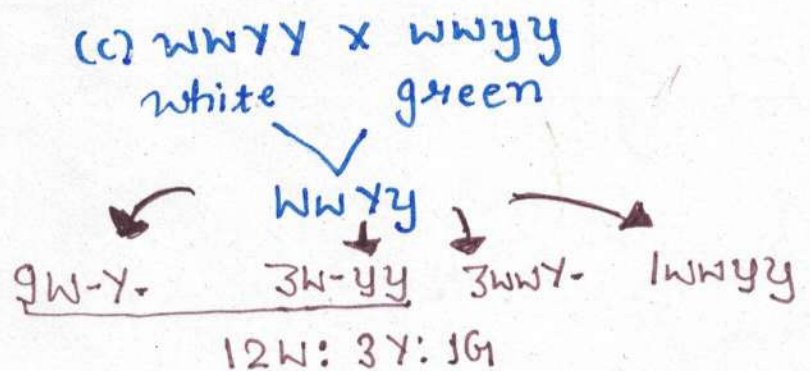 (c) WWYY x wwyy
white green
WwYy
9W-Y- 3W-yy 3wwY- 1wwyy
12W: 3Y: 1G